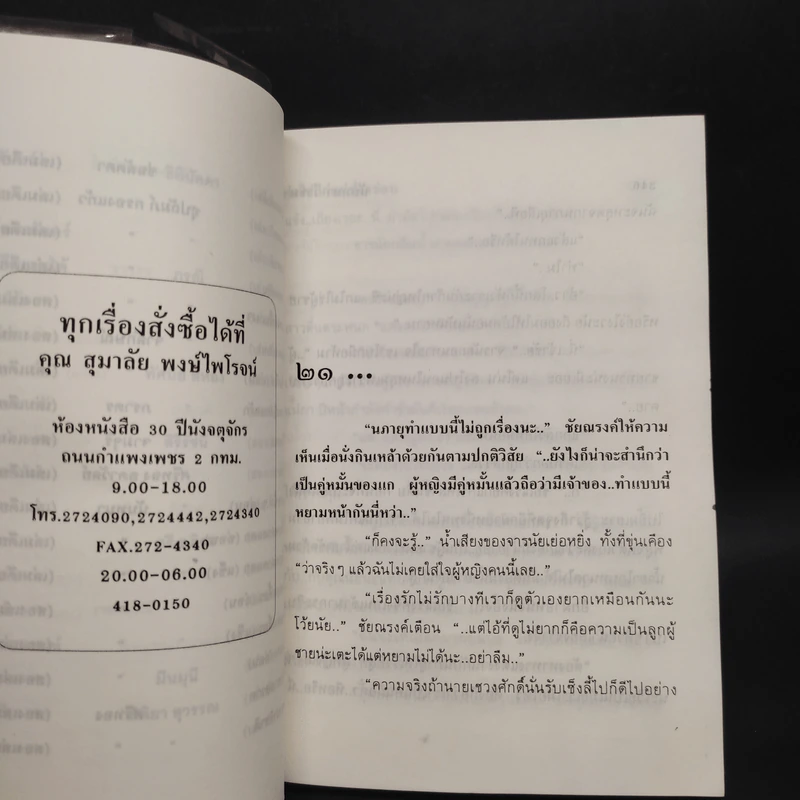 ทุกเรื่องสั่งซื้อได้ที่
คุณ สุมาลัย พงษ์ไพโรจน์
ห้องหนังสือ 30 ปีนังจตุจักร
ถนนกำแพงเพชร 2 กทม.
9.00-18.00
โทร.2724090,2724442,2724340
FAX.272-4340
20.00-06.00
418-0150
๒๑ ...
“นภายุทำแบบนี้ไม่ถูกเรื่องนะ..” ชัยณรงค์ให้ความ
เห็นเมื่อนั่งกินเหล้าด้วยกันตามปกติวิสัย “..ยังไงก็น่าจะสำนึกว่า
เป็นคู่หมั้นของแก ผู้หญิงมีคู่หมั้นแล้วถือว่ามีเจ้าของ..ทำแบบนี้
หยามหน้ากันนี่หว่า..”
“ก็คงจะรู้..” น้ำเสียงของจารนัยเย่อหยิ่ง ทั้งที่ขุ่นเคือง
“ว่าจริงๆ แล้วฉันไม่เคยใส่ใจผู้หญิงคนนี้เลย..”
“เรื่องรักไม่รักบางทีเราก็ดูตัวเองยากเหมือนกันนะ
โว้ยนัย..” ชัยณรงค์เตือน “..แต่ไอ้ที่ดูไม่ยากก็คือความเป็นลูกผู้
ชายน่ะเตะได้แต่หยามไม่ได้นะ..อย่าลืม..”
“ความจริงถ้านายเชวงศักดิ์นั่นรับเซ็งลี้ไปก็ดีไปอย่าง